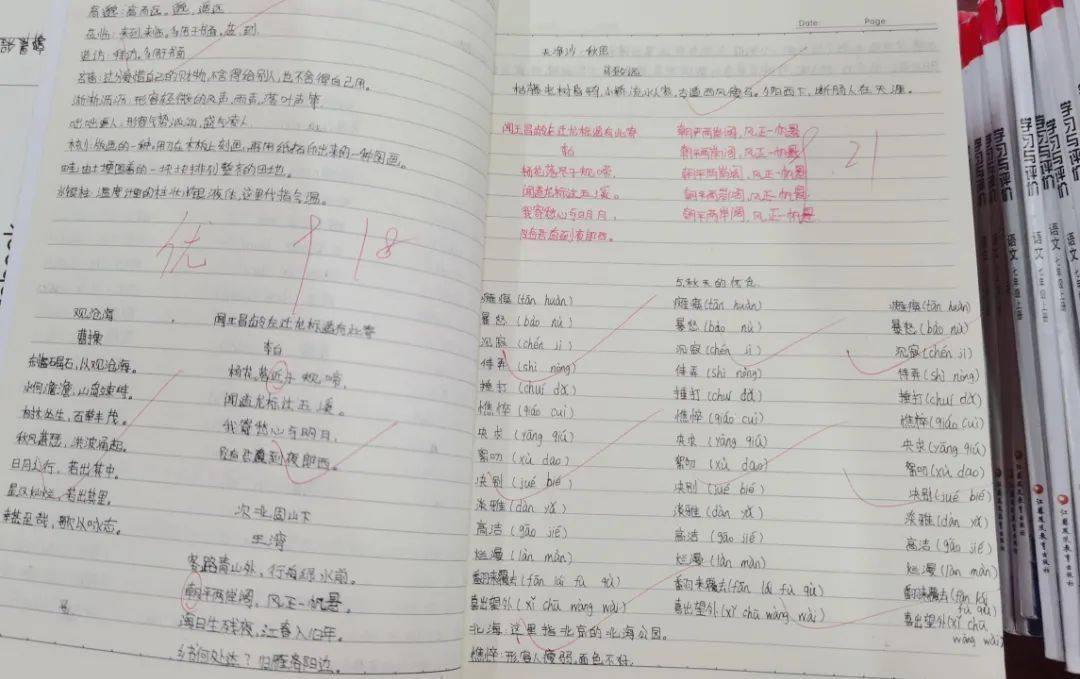 高邈:高而远。邈,遥远
莅临:来到,来临。多用于书面。莅,到。
造访:拜访。多用于书面
吝啬:过分爱惜自己的财物,不舍得给别人,也不舍得自己用。
淅淅沥沥:形容轻微的风声,雨声,落叶声等
咄咄逼人:形容气势汹汹,盛气凌人
木刻:版画的一种。用刀在木板上刻画,再用纸拓印出来的一种图画。
水银柱:温度计里的柱状水银液体,这里代指气温。
优 9 18
观沧海
曹操
东临碣石,以观沧海。
水何澹澹,山岛竦峙。
树木丛生,百草丰茂。
秋风萧瑟,洪波涌起。
日月之行,若出其中。
星汉灿烂,若出其里。
幸甚至哉,歌以咏志。
闻王昌龄左迁龙标遥有此寄
李白
闻道龙标过五溪。
我寄愁心与明月,
次北固山下
王湾
客路青山外,行舟绿水前。
潮平两岸阔,风正一帆悬。
海日生残夜,江春入旧年。
乡书何处达?归雁洛阳边。
Date: Page
天净沙·秋思
马致远
枯藤老树昏鸦,小桥流水人家,古道西风瘦马。夕阳西下,断肠人在天涯。
闻王昌龄左迁龙标遥有此寄
李白
杨花落尽子规啼,
闻道龙标过五溪。
我寄愁心与明月,
随君直到夜郎西。
潮平两岸阔,风正一帆悬
潮平两岸阔,风正一帆悬
潮平两岸阔,风正一帆悬
潮平两岸阔,风正一帆悬
潮平两岸阔,风正一帆悬
9.21
5.秋天的怀念
瘫痪(tān huàn) 瘫痪(tān huàn) 瘫痪(tān huàn)
暴怒(bào nù) 暴怒(bào nù) 暴怒(bào nù)
沉寂(chén jì) 沉寂(chén jì) 沉寂(chén jì)
侍弄(shì nòng) 侍弄(shì nòng) 侍弄(shì nòng)
捶打(chuí dǎ) 捶打(chuí dǎ) 捶打(chuí dǎ)
憔悴(qiáo cuì) 憔悴(qiáo cuì) 憔悴(qiáo cuì)
央求(yāng qiú) 央求(yāng qiú) 央求(yāng qiú)
絮叨(xù dao) 絮叨(xù dao) 絮叨(xù dao)
决别(jué bié) 决别(jué bié) 决别(jué bié)
淡雅(dàn yǎ) 淡雅(dàn yǎ) 淡雅(dàn yǎ)
高洁(gāo jié) 高洁(gāo jié) 高洁(gāo jié)
烂漫(làn màn) 烂漫(làn màn) 烂漫(làn màn)
翻来覆去(fān lái fù qù) 翻来覆去(fān lái fù qù) 翻来覆去(fān lái fù qù)
喜出望外(xǐ chū wàng wài) 喜出望外(xǐ chū wàng wài) 喜出望外(xǐ chū wàng wài)
北海:这里指北京的北海公园。
憔悴:形容人瘦弱,面色不好。
学习与评价
语文 七年级上册
学习与评价
语文 七年级上册
学习与评价
语文 七年级上册
江苏凤凰教育出版社
江苏凤凰教育出版社